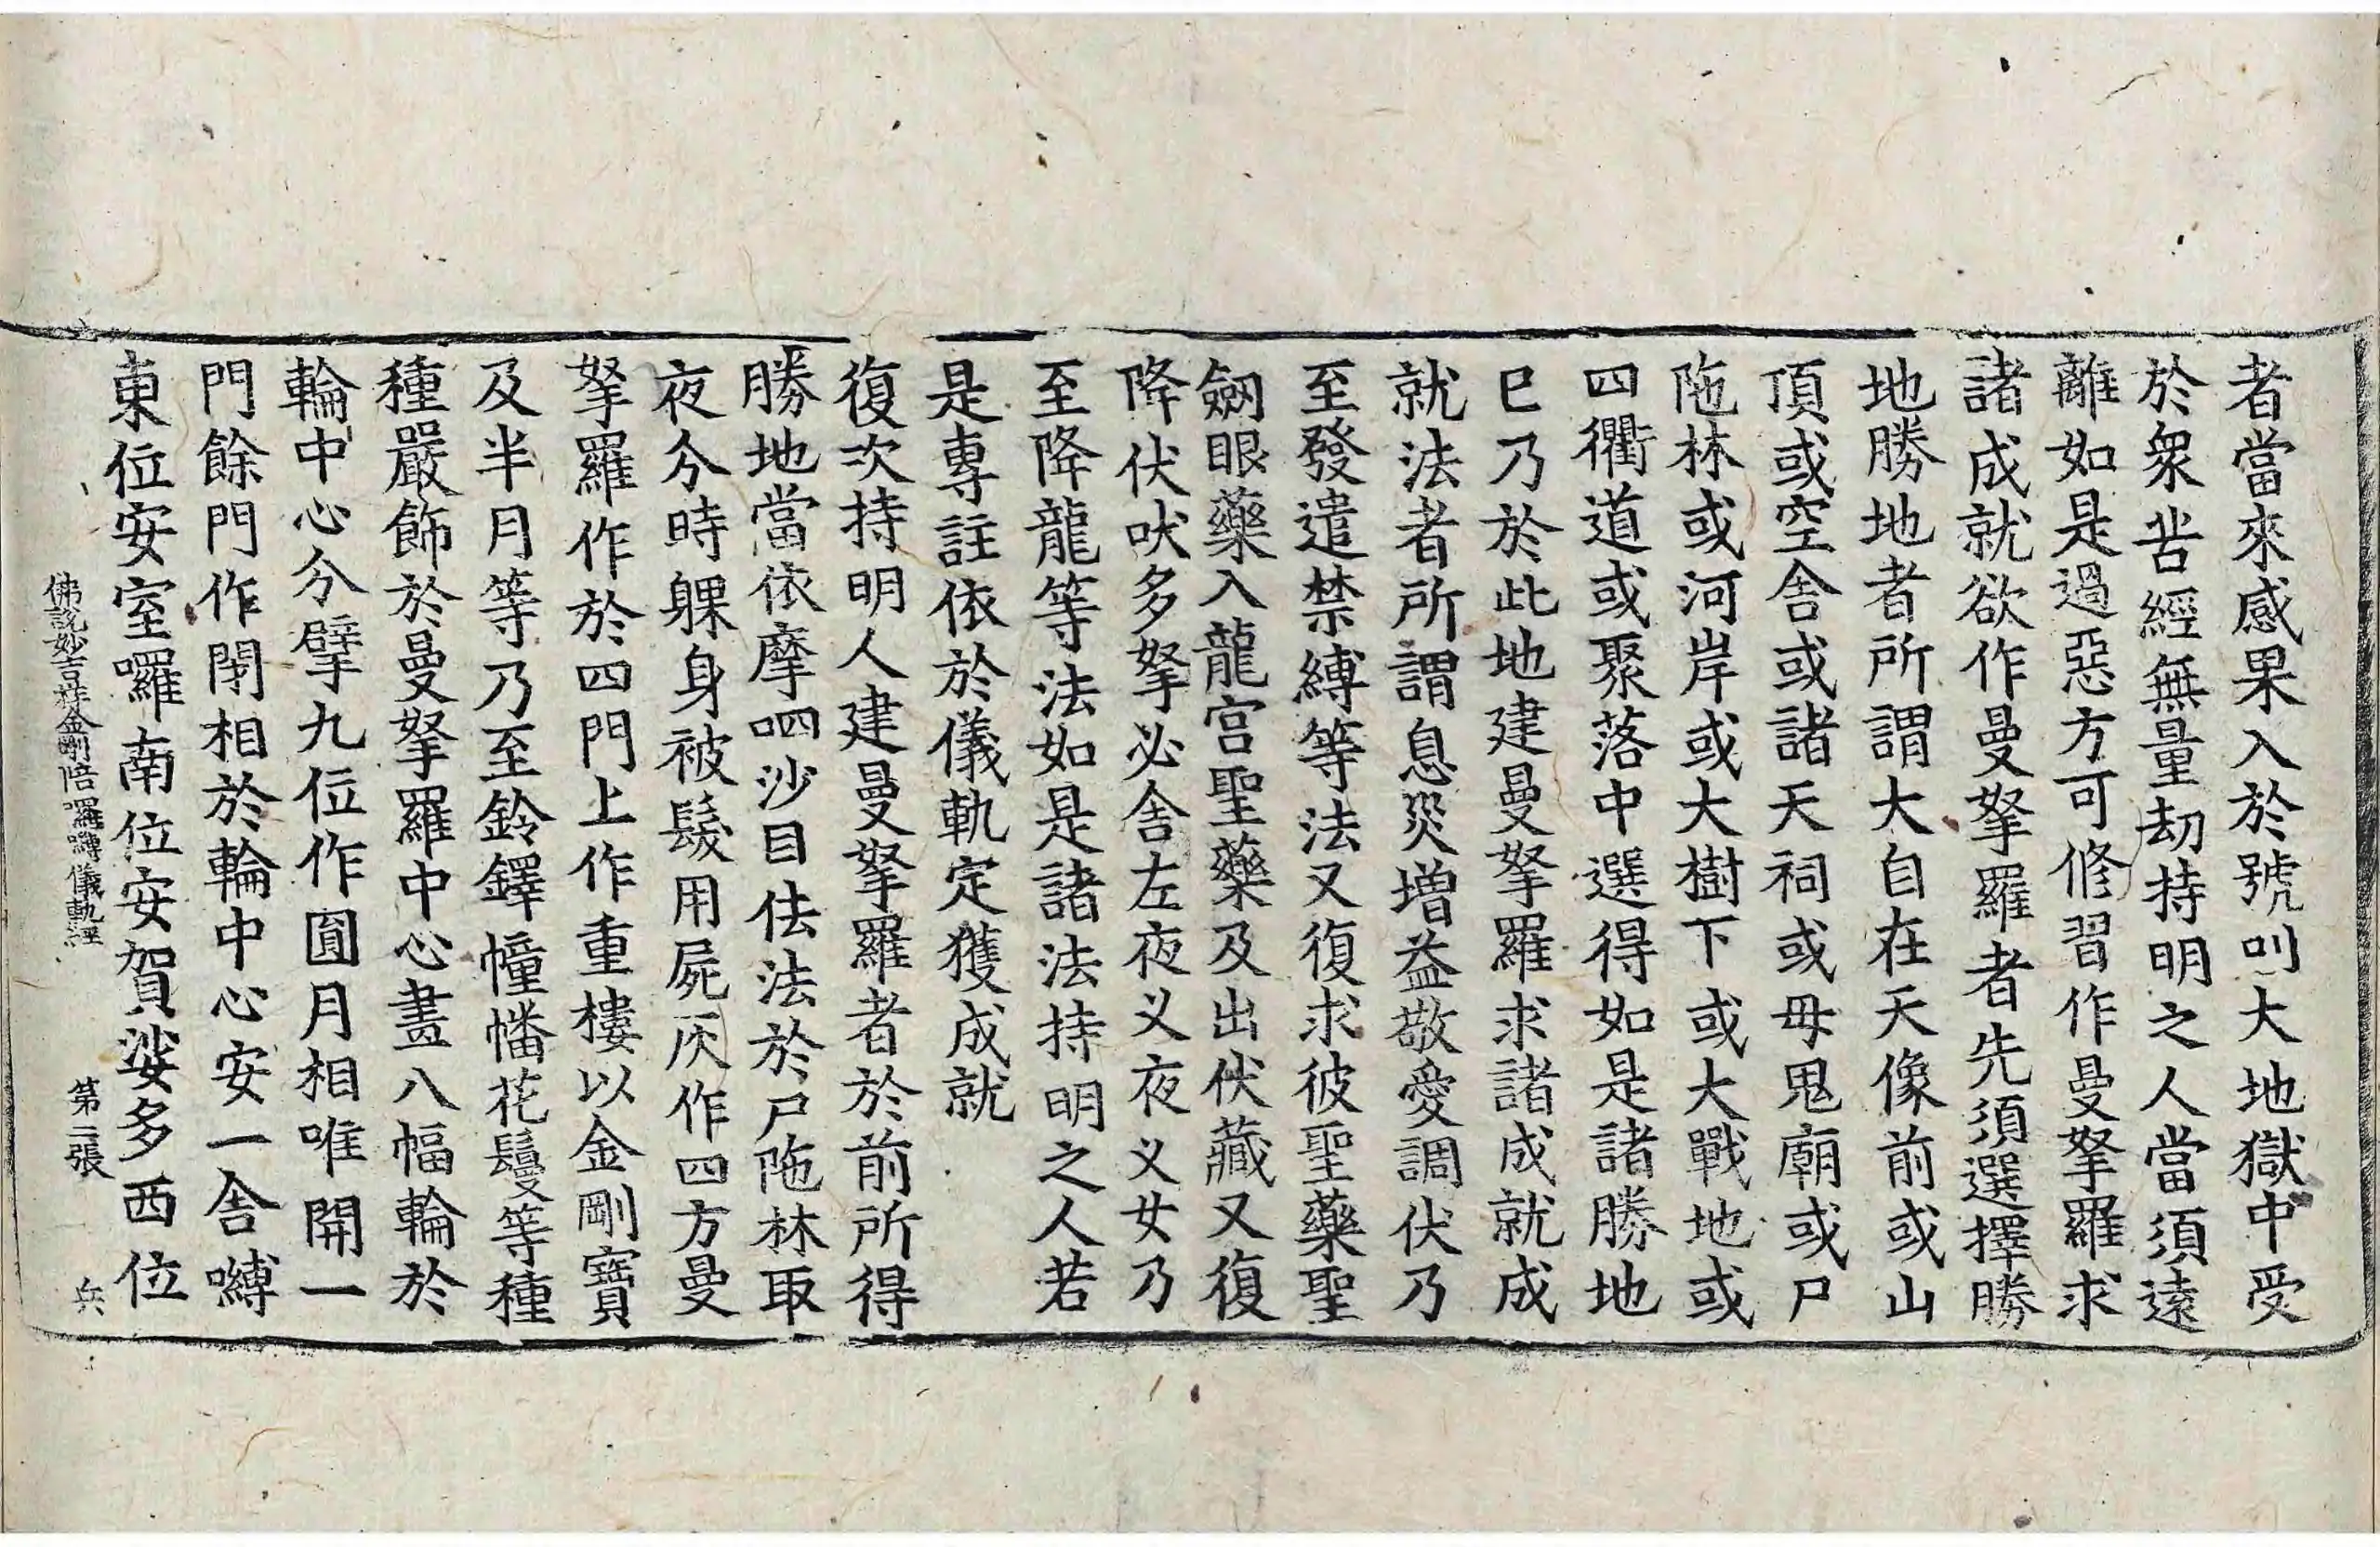 者當來感果入於號叫大地獄中受
於衆苦經無量劫持明之人當須遠
離如是過惡方可修習作曼拏羅求
諸成就欲作曼拏羅者先須選擇勝
地勝地者所謂大自在天像前或山
頂或空舍或諸天祠或母鬼廟或尸
陁林或河岸或大樹下或大戰地或
四衢道或聚落中選得如是諸勝地
巳乃於此地建曼拏羅求諸成就成
就法者所謂息災增益敬愛調伏乃
至發遣禁縛等法又復求彼聖藥聖
劒眼藥入龍宮聖藥及出伏藏又復
降伏吠多拏必舍左夜叉夜叉女乃
至降龍等法如是諸法持明之人若
是專註依於儀軌定獲成就
復次持明人建曼拏羅者於前所得
勝地當依摩呬沙目佉法於尸陁林取
夜分時躶身被髮用屍灰作四方曼
拏羅作於四門上作重樓以金剛寶
及半月等乃至鈴鐸幢幡花鬘等種
種嚴飾於曼拏羅中心畫八幅輪於
輪中心分擘九位作圓月相唯開一
門餘門作閉相於輪中心安一舍嚩
東位安室囉南位安賀娑多西位
佛說妙吉祥金剛陪囉嚩儀軌經 第二張 兵